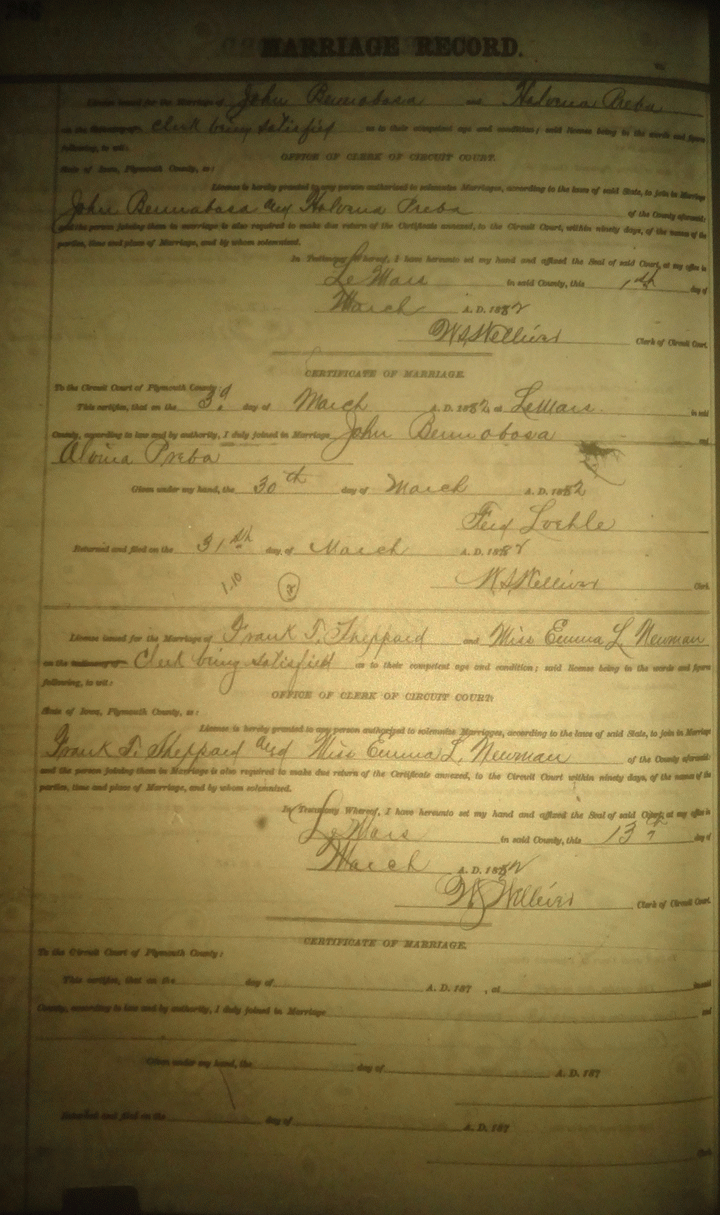 MARRIAGE RECORD.
License issued for the Marriage of John Bennobosa and Halvena Preba
on the clerk being satisfied as to their competent age and condition; said license being in the words and figures
following, to wit:
OFFICE OF CLERK OF CIRCUIT COURT.
State of Iowa, Plymouth County, ss:
License is hereby granted to any person authorized to solemnize Marriages, according to the laws of said State, to join in Marriage
John Bennobosa and Halvena Preba of the County aforesaid;
and the person joining them in marriage is also required to make due return of the Certificate annexed, to the Circuit Court, within ninety days, of the names of the
parties, time and place of Marriage, and by whom solemnized.
In Testimony Whereof, I have hereunto set my hand and affixed the Seal of said Court, at my office in
Le Mars in said County, this 1st day of
March A. D. 1882
W.S. Welliver Clerk of Circuit Court.
CERTIFICATE OF MARRIAGE.
To the Circuit Court of Plymouth County:
This certifies, that on the 3d day of March A. D. 1882, at LeMars in said
County, according to law and by authority, I duly joined in Marriage John Bennobosa and
Alvina Preba
Given under my hand, the 30th day of March A. D. 1882
Fred Loehle
Returned and filed on the 31st day of March A. D. 1882
W.S. Welliver Clerk.
1.10
License issued for the Marriage of Frank T. Sheppard and Miss Emma L. Newman
on the testimony of Clerk being satisfied as to their competent age and condition; said license being in the words and figures
following, to wit:
OFFICE OF CLERK OF CIRCUIT COURT:
State of Iowa, Plymouth County, ss:
License is hereby granted to any person authorized to solemnize Marriages, according to the laws of said State, to join in Marriage
Frank T. Sheppard and Miss Emma L. Newman of the County aforesaid:
and the person joining them in Marriage is also required to make due return of the Certificate annexed, to the Circuit Court within ninety days, of the names of the
parties, time and place of Marriage, and by whom solemnized.
In Testimony Whereof, I have hereunto set my hand and affixed the Seal of said Court, at my office in
Le Mars in said County, this 13th day of
March A. D. 1882
W.S. Welliver Clerk of Circuit Court.
CERTIFICATE OF MARRIAGE.
To the Circuit Court of Plymouth County:
This certifies, that on the day of A. D. 187 , at in said
County, according to law and by authority, I duly joined in Marriage and
Given under my hand, the day of A. D. 187
Returned and filed on the day of A. D. 187
Clerk.